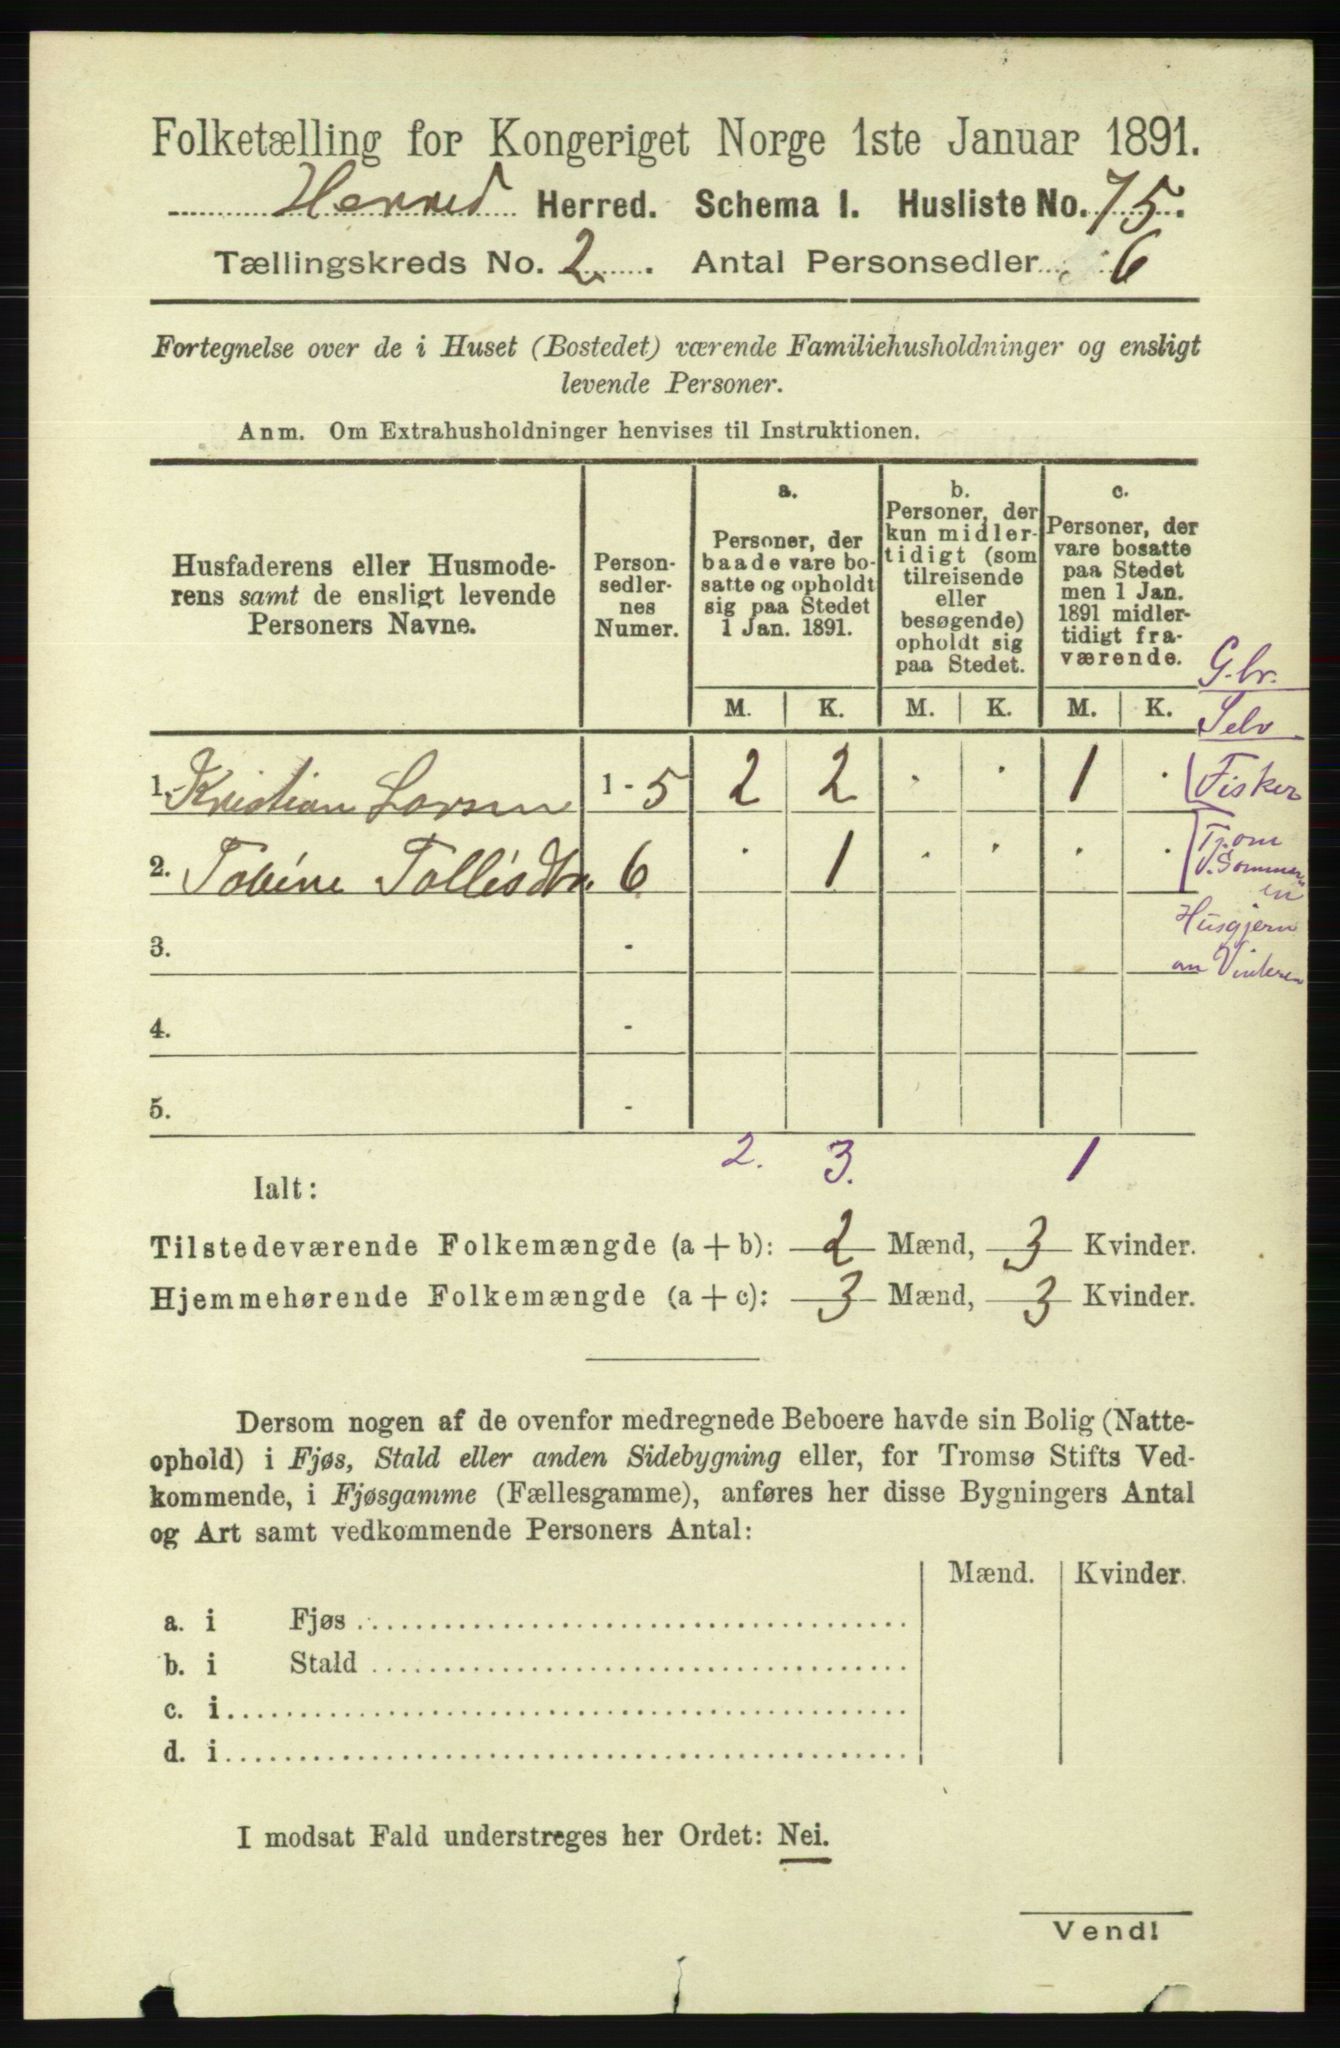 Folketælling for Kongeriget Norge 1ste Januar 1891.
Herred Herred. Schema I. Husliste No. 75.
Tællingskreds No. 2. Antal Personsedler 6
Fortegnelse over de i Huset (Bostedet) værende Familiehusholdninger og ensligt
levende Personer.
Anm. Om Extrahusholdninger henvises til Instruktionen.
Husfaderens eller Husmode-
rens samt de ensligt levende
Personers Navne.
Person-
sedler-
nes
Numer.
a.
Personer, der
baade vare bo-
satte og opholdt
sig paa Stedet
1 Jan. 1891.
b.
Personer, der
kun midler-
tidigt (som
tilreisende
eller
besøgende)
opholdt sig
paa Stedet.
c.
Personer, der
vare bosatte
paa Stedet
men 1 Jan.
1891 midler-
tidigt fra-
værende.
G.br.
Selv
M. K. M. K. M. K.
1. Kristian Larsen 1 - 5 2 2 · · 1 · Fisker
2. Tobine Tollisdtr. 6 · 1 · · · · Tj. om
Sommer
en
Husgjern
om Vinteren
3. -
4. -
5. -
2. 3. 1
Ialt:
Tilstedeværende Folkemængde (a + b): 2 Mænd, 3 Kvinder.
Hjemmehørende Folkemængde (a + c): 3 Mænd, 3 Kvinder.
Dersom nogen af de ovenfor medregnede Beboere havde sin Bolig (Natte-
ophold) i Fjøs, Stald eller anden Sidebygning eller, for Tromsø Stifts Ved-
kommende, i Fjøsgamme (Fællesgamme), anføres her disse Bygningers Antal
og Art samt vedkommende Personers Antal:
Mænd. Kvinder.
a. i Fjøs
b. i Stald
c. i
d. i
I modsat Fald understreges her Ordet: Nei.
Vend!